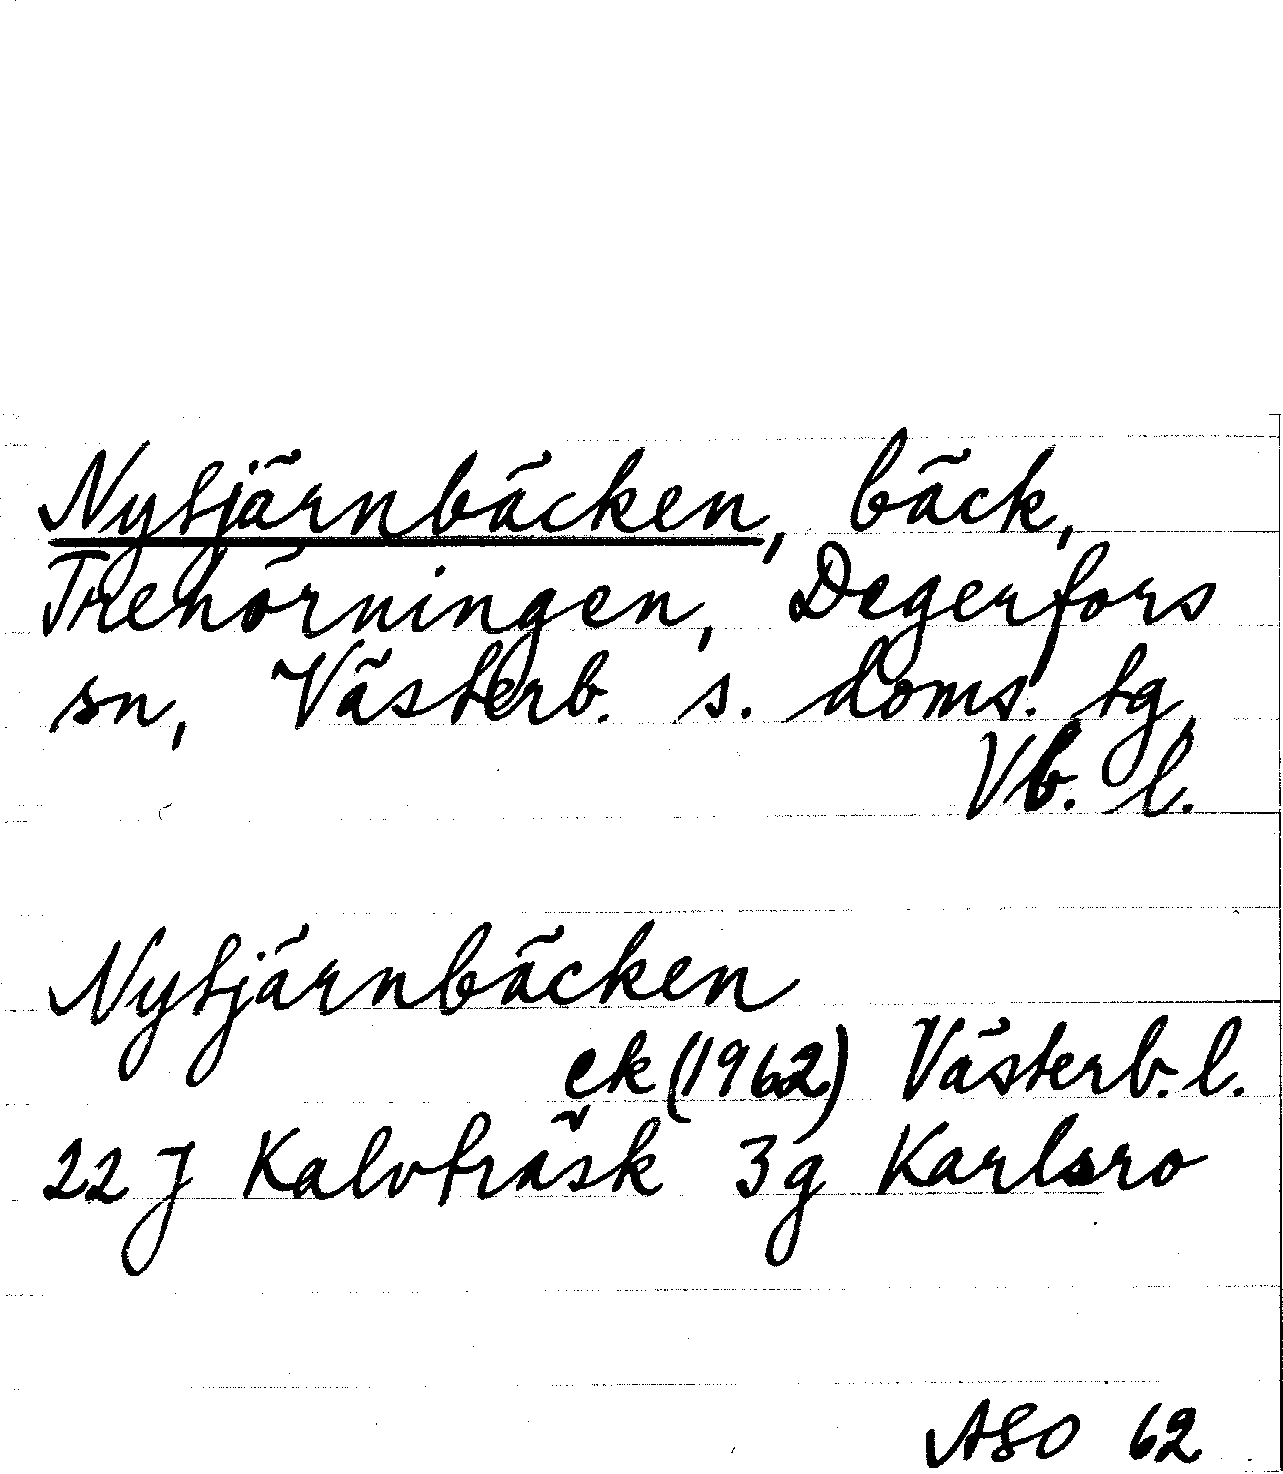 Nytjärnbäcken, bäck,
Trehörningen, Degerfors
sn, Västerb. s. doms. tg,
Vb. l.
Nytjärnbäcken
ek (1962) Västerb. l.
22 J Kalvträsk 3g Karlsro
ASO 62